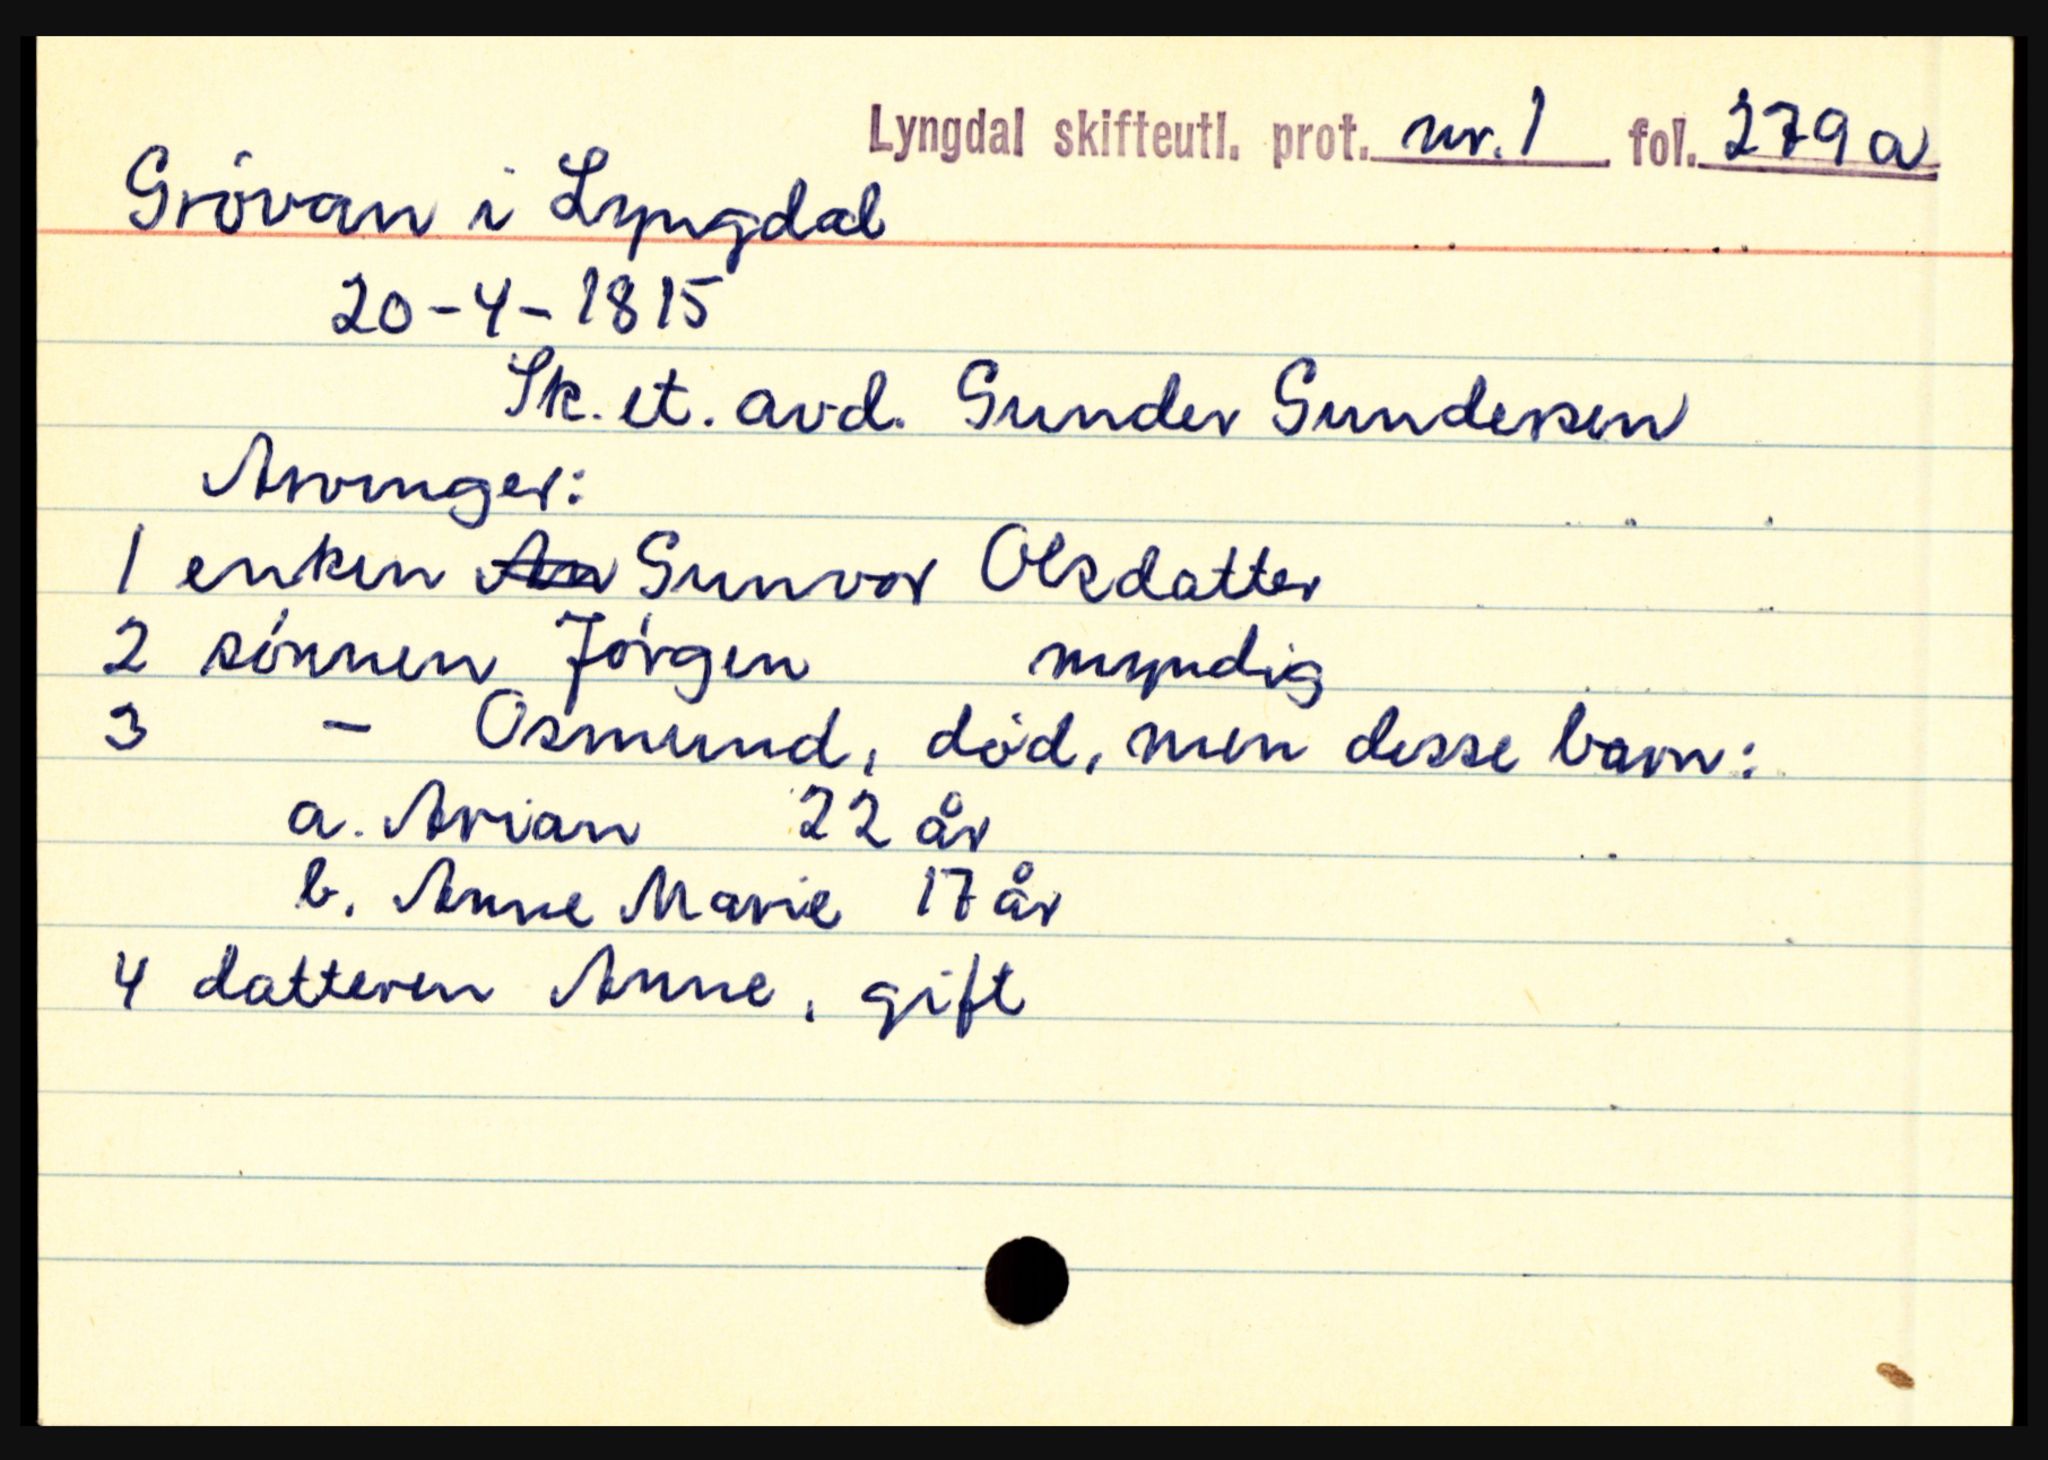 Lyngdal skifteutl. prot. nr. 1 fol. 279a
Grövan i Lyngdal
20-4-1815
Sk. et. avd. Gunder Gundersen
Arvinger:
1 enken An Gunvor Olsdatter
2 sónnen Jórgen myndig
3 - Osmund, död, men desse barn:
a. Arian 22 år
b. Anne Marie 17 år
4 datteren Anne, gift